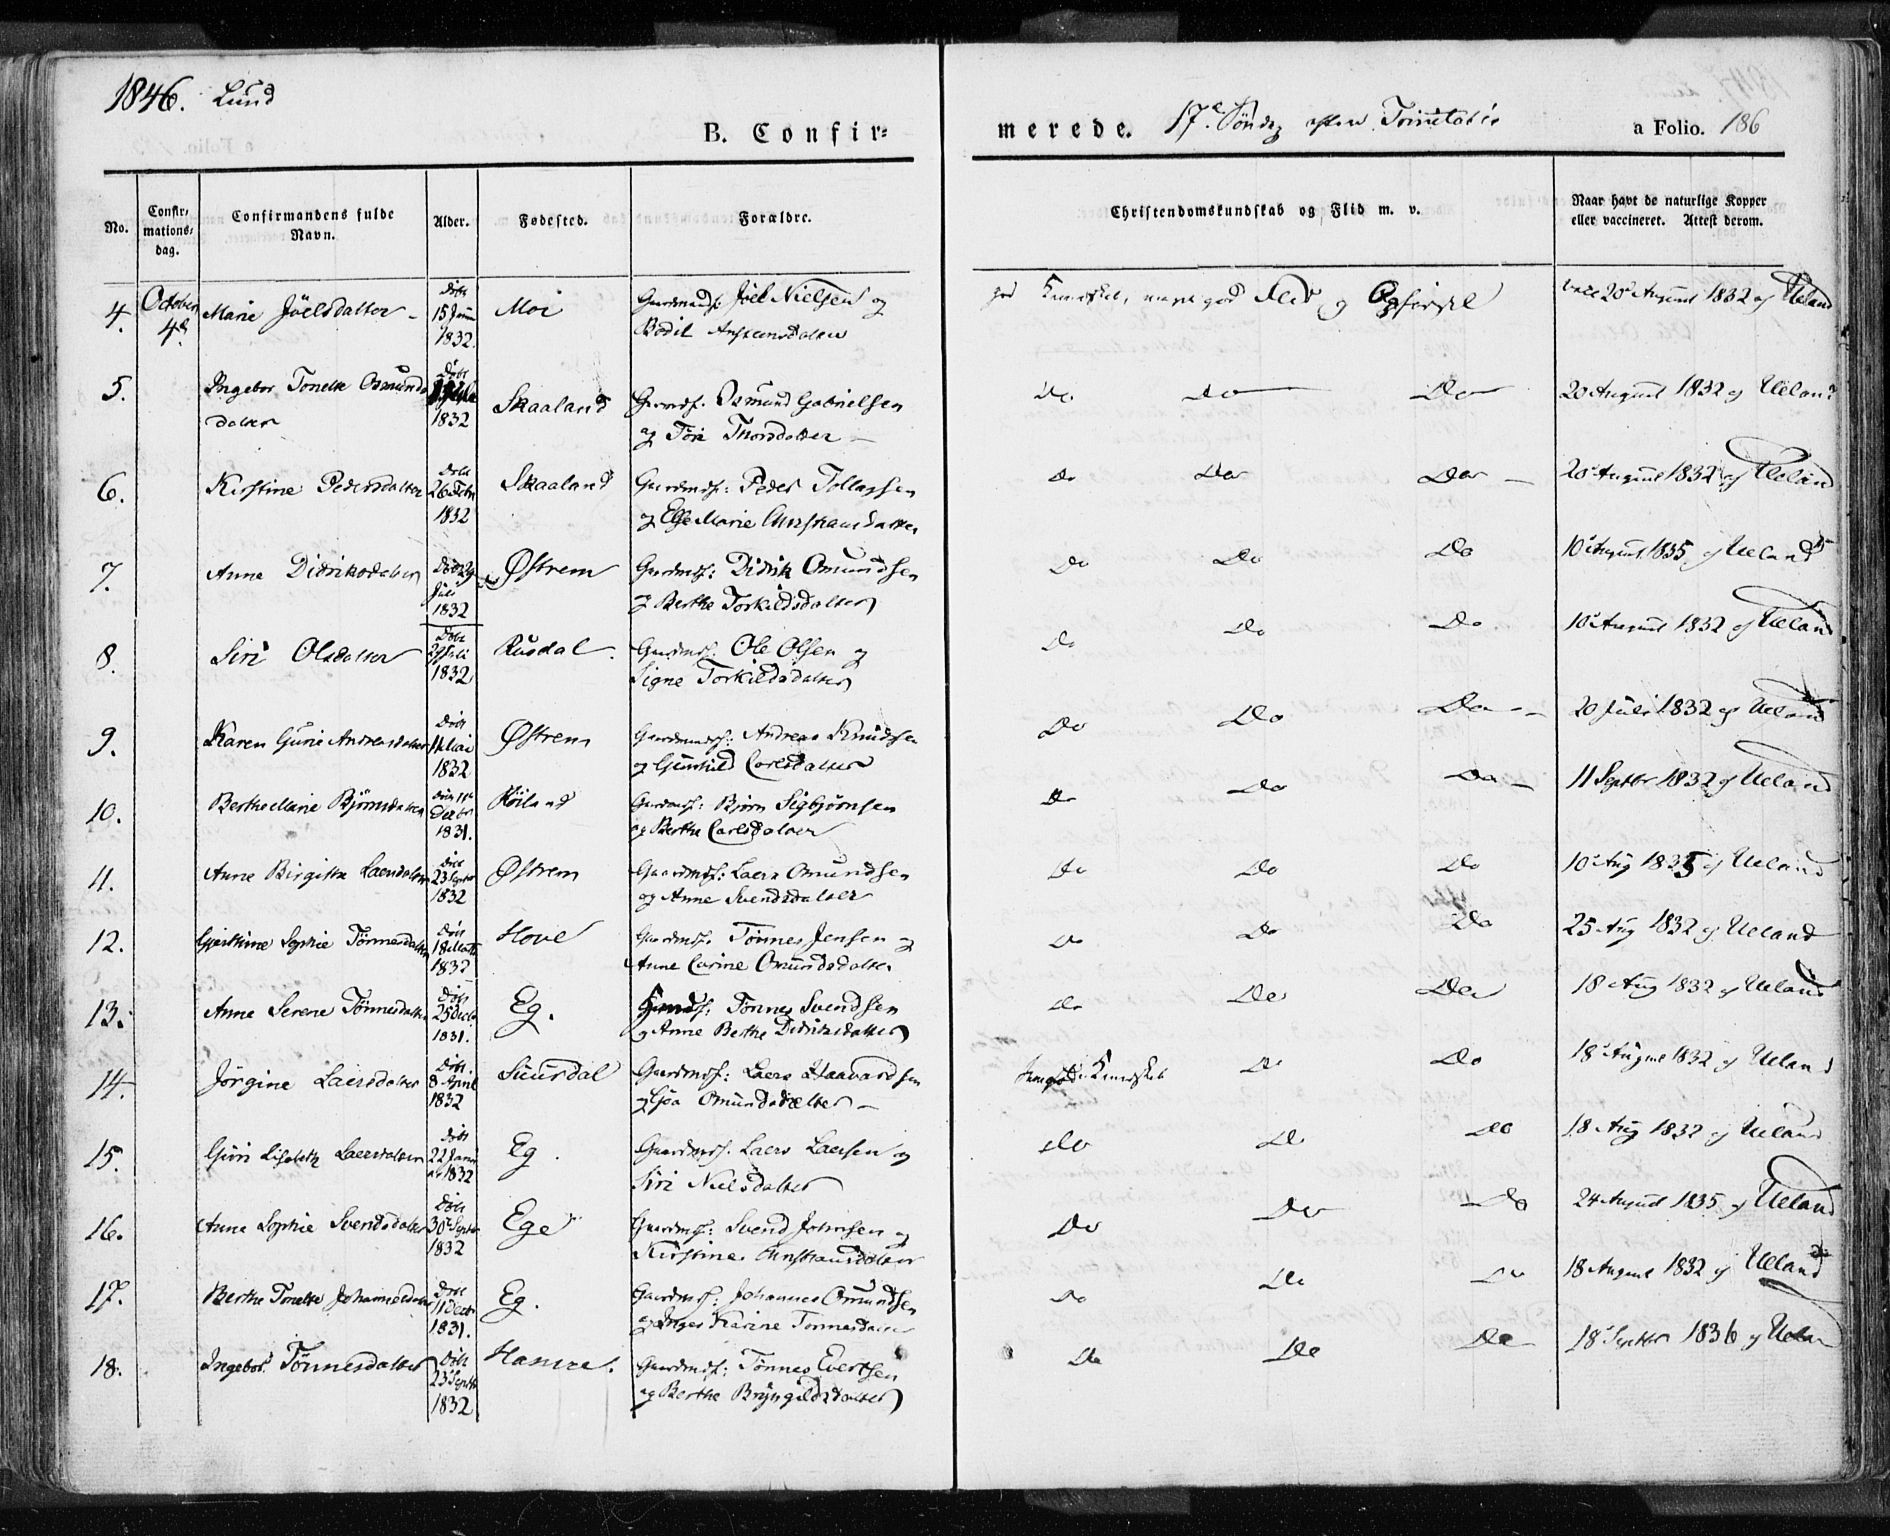 1846. Lund
B. Confir-
merede. 17e Søndag efter Trinitatis
a Folio. 186
No.
Confir-
mations-
dag.
Confirmandens fulde
Navn.
Alder.
Fødested.
Forældre.
Christendomskundskab og Flid m. v.
Naar havt de naturlige Kopper
eller vaccineret. Attest derom.
4. October Marie Joelsdatter Døbt Moi Gaardmdf. Joel Nielsen og
4de 15 Juni Bodil
1832
god Kundskab, meget god Flid og Opførsel vacc 20 August 1832 af Ueland
5. Ingebor Tonette Osmunds Døbt Skaaland Gaardmf. Osmund Gabrielsen
datter 1832 og Tori Thorsdatter
Do Do Do 20 August 1832 af Ueland
6. Kirstine Pedersdatter Døbt Skaaland Gaardmdf: Peder Tollagsen
26 Febr 1832 og Else Marie Christiansdatter
Do Do Do 20 August 1832 af Ueland
7. Anne Didriksdatter Døbt 29 Østrem Gaardmdf: Didrik Omundsen
Juli 1832 og Berthe Torkildsdatter
Do Do Do 10 August 1835 af Ueland
8. Siri Olsdatter Døbt Rusdal. Gaardmdf. Ole Olsen og
29 Juli 1832 Signe Torkildsdatter
Do Do Do 10 August 1832 af Ueland
9. Karen Gurie Andreasdatter Døbt Østrem Gaardmandsf. Andreas Knudsen
Mai 1832 og Gunhild Carlsdatter
Do Do Do 20 Juli 1832 af Ueland
10. Berthe Marie Bjørnsdatter Døbt 11te Høiland Gaardmdf: Bjørn Sigbjørnsen
Decbr 1831. og Berthe Carlsdatter
Do Do Do 11 Septbr 1832 af Ueland
11. Anne Birgitte Laersdatter Døbt Østrem Gaardmdf: Laers Omundsen
23 Septbr 1832 og Anne Svendsdatter
Do Do Do 10 Aug 1835 af Ueland
12. Sophie Tønnesdatter Døbt Hove Gaardmdf. Tønnes Jensen og
18 Marts 1832 Anne Carine Omundsdatter
Do Do Do 25 Aug 1832 af Ueland
13. Anne Serene Tønnesdatter Døbt Eg. Gaardmdf: Tønnes Svendsen
25 Decbr 1831. og Anne Berthe Didriksdatter
Do Do Do 18 Aug 1832 af Ueland
14. Jørgine Laersdatter Døbt Suursdal Gaardmdf: Laers Haavardsen
8 April 1832 og Gjoa Omundsdatter
Kundskab Do Do 18 August 1832 af Ueland
15. Guri Lisabeth Laersdatter Døbt Eg. Gaardmdf. Laers Laersen og
22 Januar 1832 Siri Nielsdatter
Do Do Do 18 Aug 1832 af Ueland
16. Anne Sophie Svendsdatter Døbt Ege Gaardmdf: Svend Johnsen og
30 Septbr 1832 Kirstine Christiansdatter
Do Do Do 24 August 1835 af Ueland
17. Berthe Tonette Johannesdatter Døbt Eg. Gaardmdf: Johannes Omundsen
11 Decbr 1831. og Inger Karine Tonnesdatter
Do Do Do 18 August 1832 af Ueland
18. Ingebor Tønnesdatter Døbt Hamre. Gaardmdf: Tønnes Evertsen
23 Septbr 1832 og Berthe Bryngildsdatter
Do Do Do 18 Septbr 1836 af Uelan